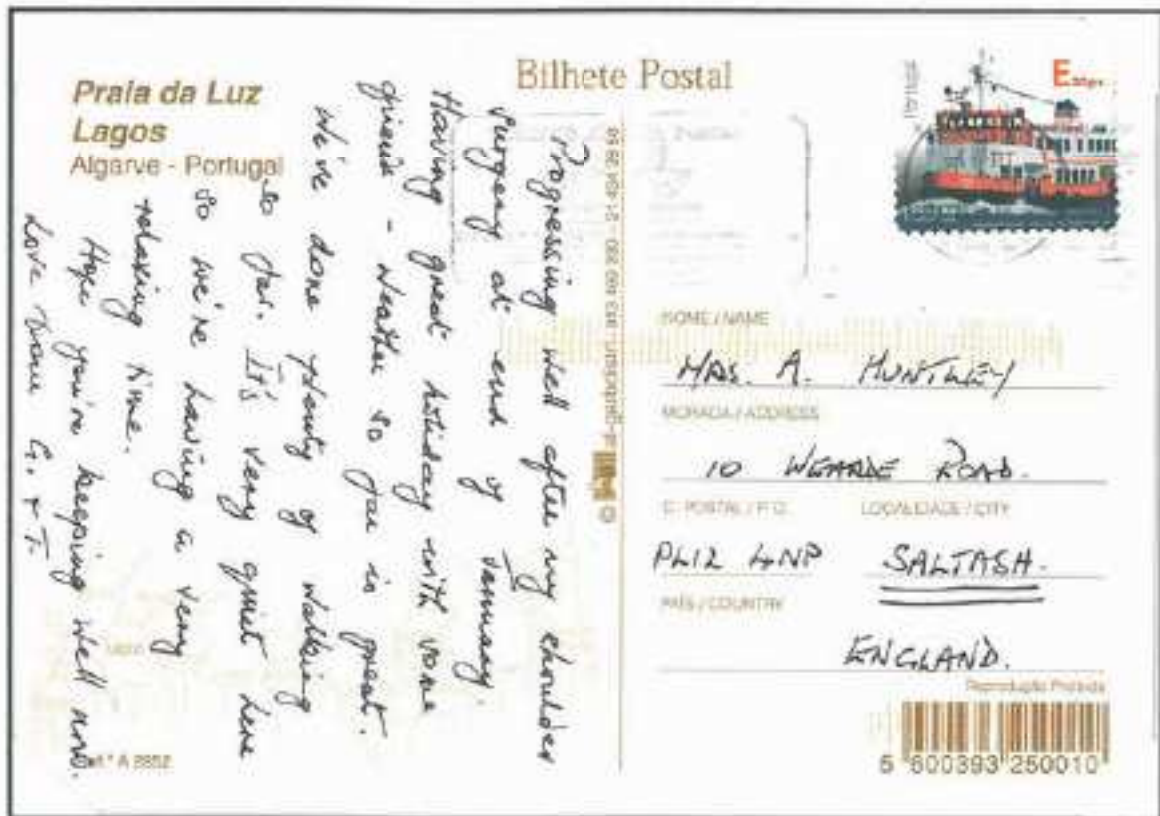 Praia da Luz
Lagos
Algarve - Portugal
Bilhete Postal
Portugal
E
Progressing well after my shoulder
surgery at end of January.
Having great holiday with some
friends - weather so far is great.
We've done plenty of walking
so far. It's very quiet here
so we're having a very
relaxing time.
Hope you're keeping well and.
Love from G. & T.
NOME / NAME
MRS. A. HUNTLEY
MORADA / ADDRESS
10 WEARDE ROAD.
C. POSTAL / P.O.
LOCALIDADE / CITY
PL12 4NP
SALTASH.
PAÍS / COUNTRY
ENGLAND.
Reprodução Proibida
5 600393 250010
Ref.ª A 2852